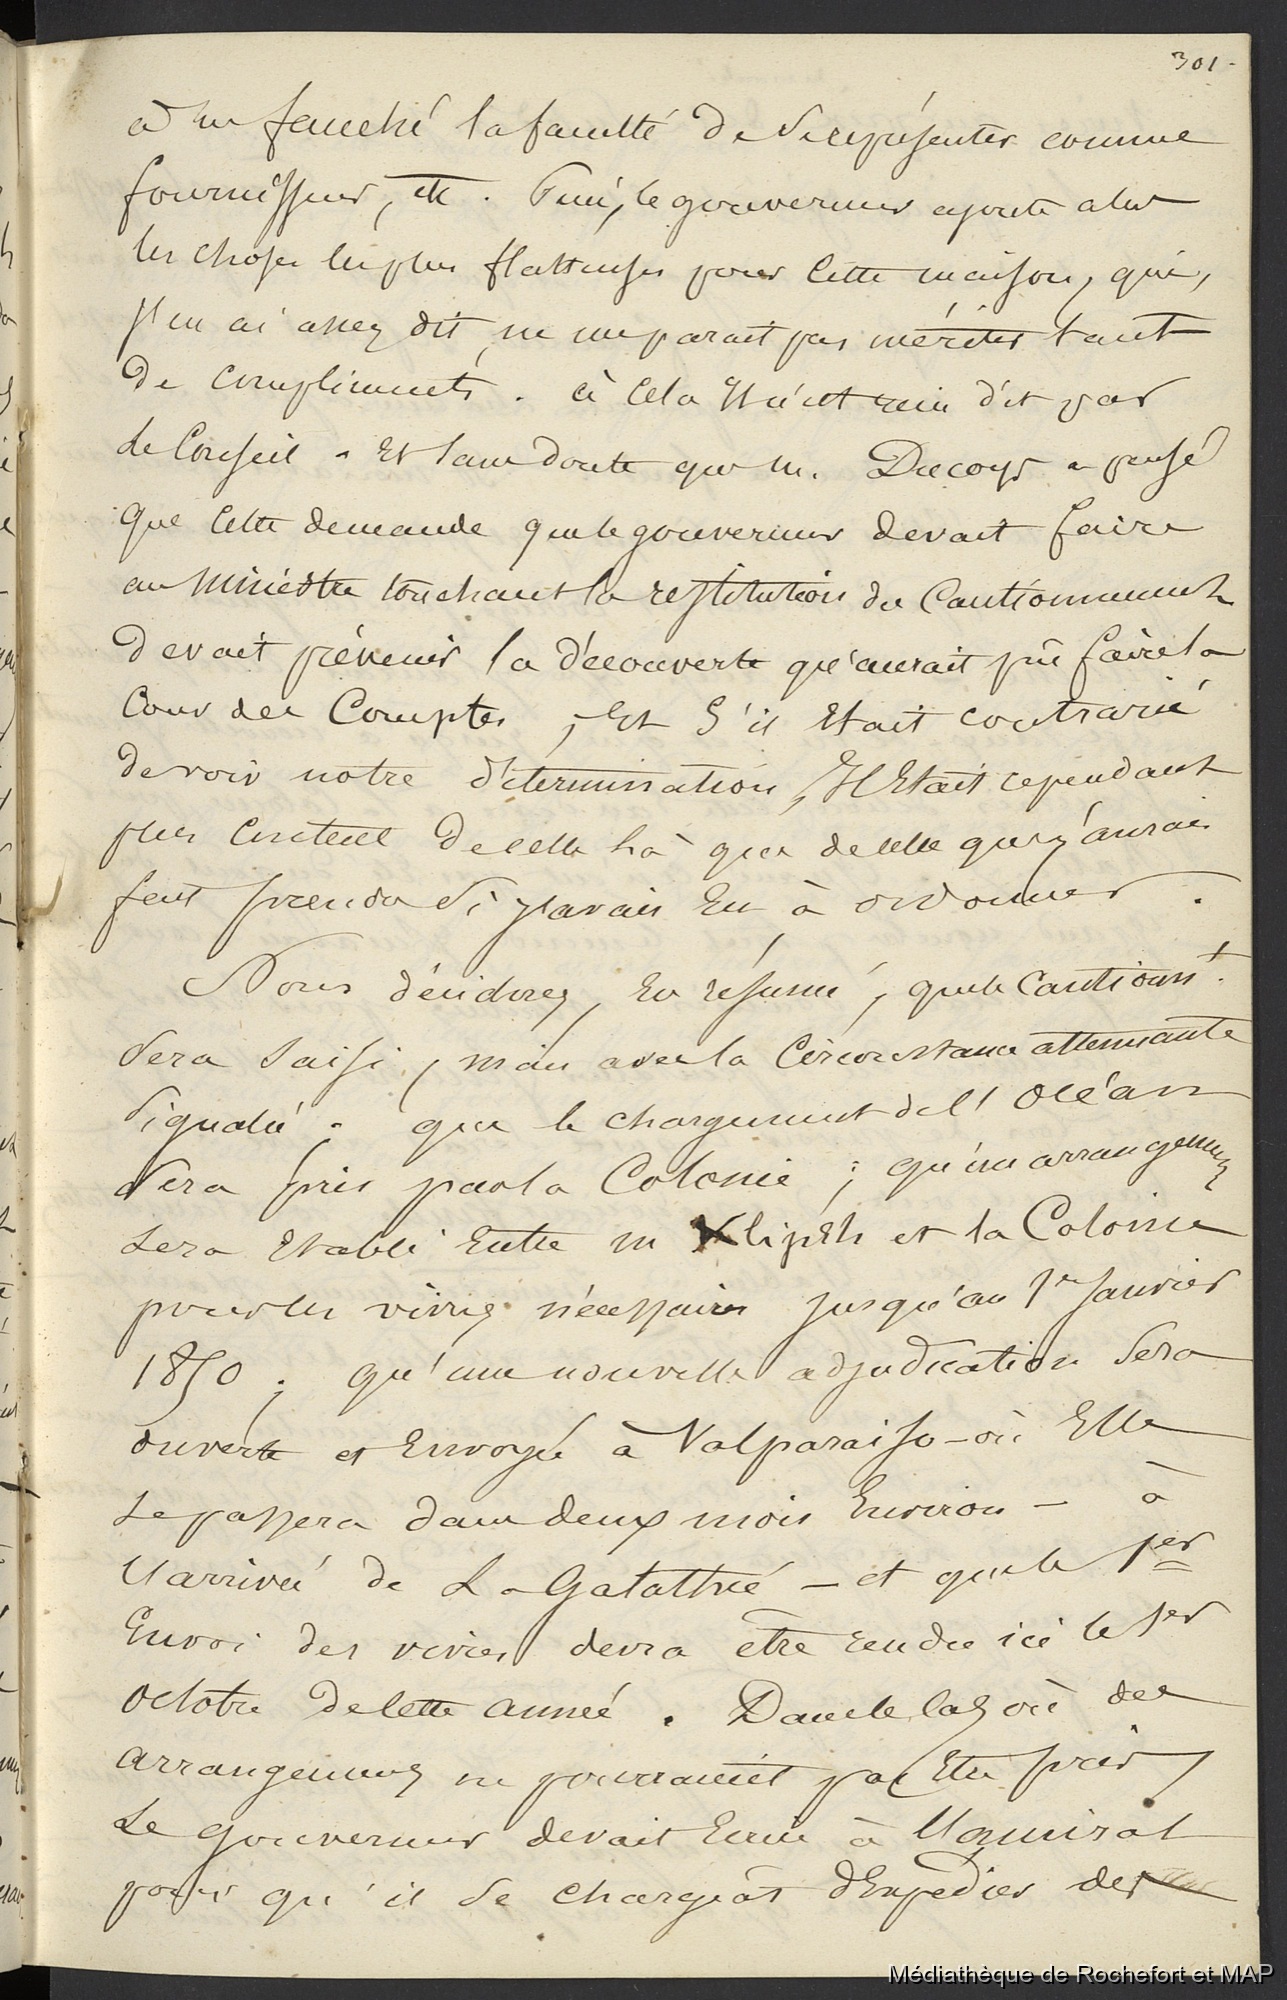 301-
à m fauché la faculté de se représenter comme
fournisseur, etc. Puis, le gouverneur ajoute alors
les choses les plus flatteuses pour cette maison, qui,
j'en ai assez dit, ne me parait pas mériter tant
de compliments. à cela Il n'est rien dit par
le Conseil. Et sans doute que m. Ducoys a pensé
que cette demande que le gouverneur devait faire
au Ministre touchant la restitution du Cautionnement
devait prévenir la découverte qu'aurait pû faire la
Cour des Comptes, Et S'il Etait contrarié
de voir notre détermination, Il Etait cependant
plus content de celle là que de celle que j'aurais
fait prendre si j'avais Eu à ordonner.
Nous décidons, En résumé, que le Cautionnt.
Sera Saisi, mais avec la Circonstance attenuante
Signalée. que le chargement de l'Océan
Sera pris par la Colonie; qu'un arrangement
sera Etabli Entre m Klipsh et la Colonie
pour les vivres nécessaires jusqu'au 1er Janvier
1850; qu'une nouvelle adjudication Sera
ouverte et Envoyée à Valparaiso - où Elle
se passera dans deux mois Environ - à
l'arrivée de La Galathée - et que le 1er
Envoi des vivres devra être rendu ici le 1er
octobre de cette année. Dans le cas où des
arrangemens ne pourraient pas Etre pris,
Le gouverneur devait Ecrire à l'amiral
pour qu'il se chargeât d'Expédier des
Médiathèque de Rochefort et MAP